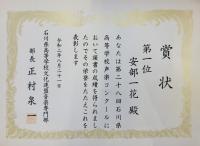 賞状
第一位
安部一花殿
あなたは第二十八回石川県
高等学校声楽コンクールに
おいて頭書の成績を得られまし
たのでその栄誉をたたえこれを
表彰します
令和二年八月二十一日
石川県高等学校文化連盟音楽専門部
部長 正村泉一